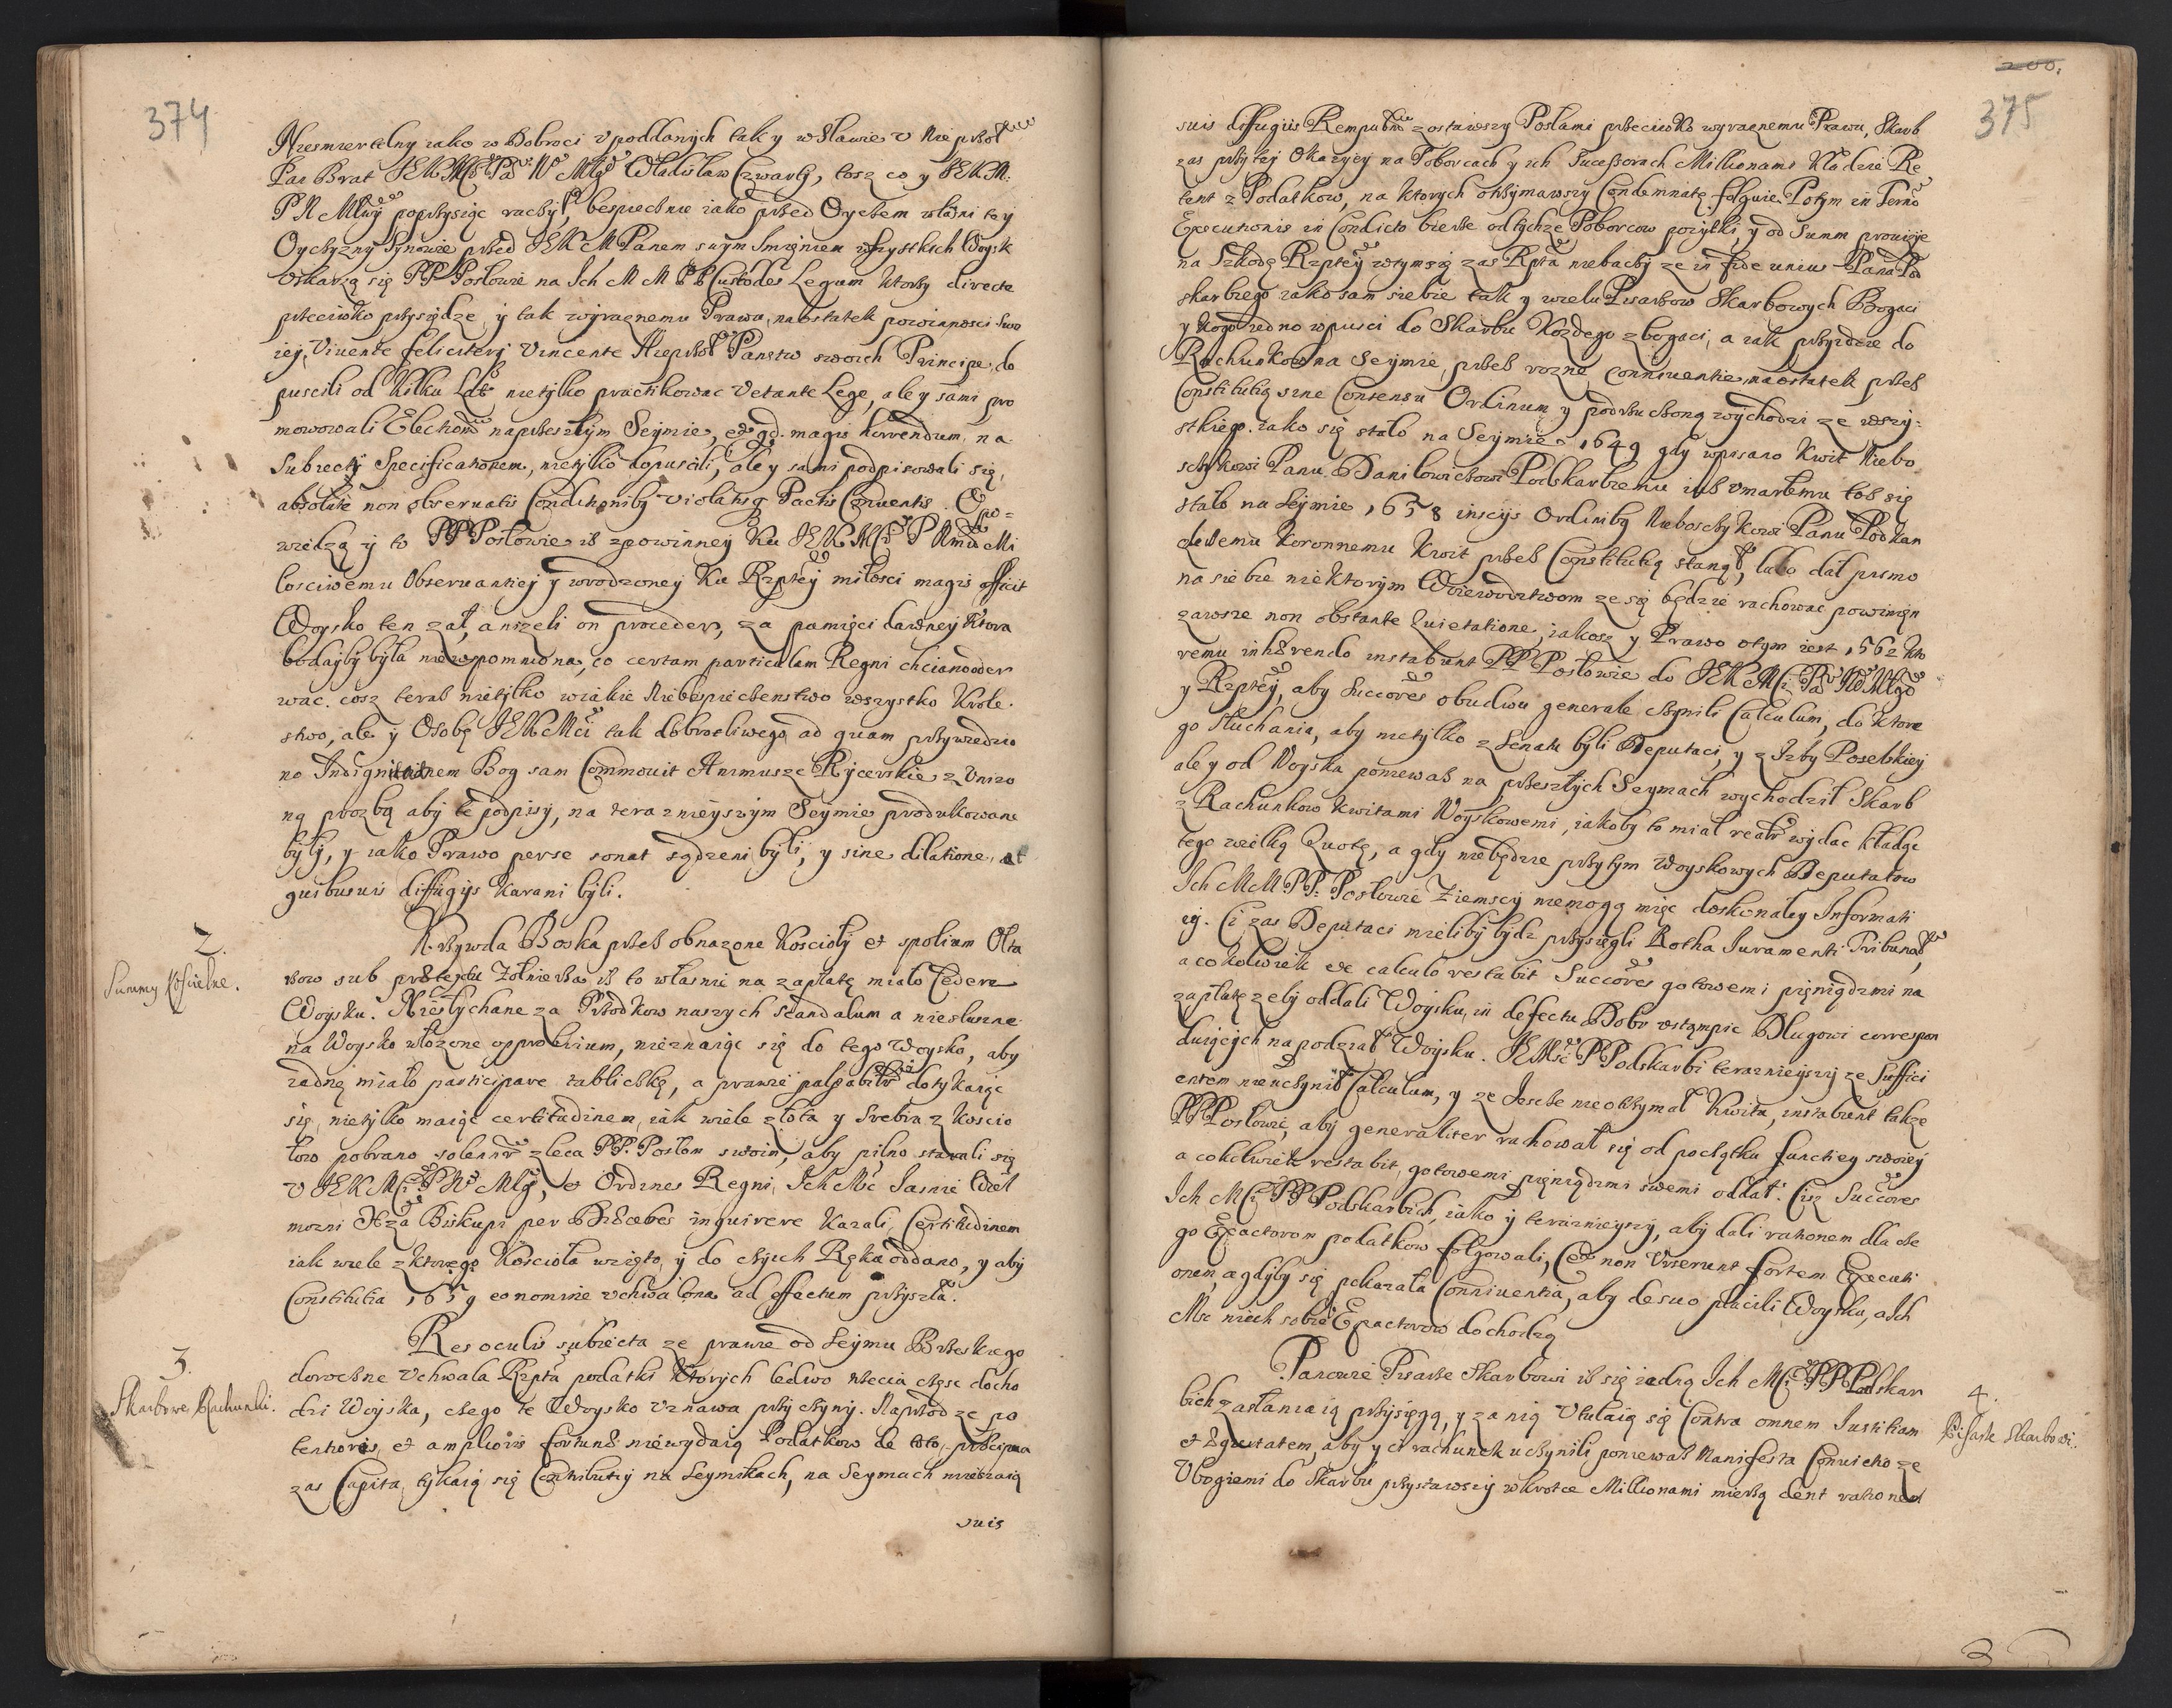 374
Niesmiertelny iako w Dobroci v poddanych tak y w Sławie v Nieprzÿł
Pan Brat JEKMCi Pa No Młgo Władisław Czwarty, tosz co y JEKM.
P N Młwy poprzysiąc raczył, bespiecznie iako przed Oycem własni tey
Oyczyzny Synowie przed JEKM Panem swym Imięniem wszystkich Woysk
Vskarzą się PP Posłowie na Ich M M PP Custodes Legum Ktorzy directe
przeciwko przysiędze, y tak wyraznemu Prawu, na ostatek powinności Swo
iey, Viuente feliciterq Vincente Nieprzÿł Panstw swoich Principe, do
puscili od kilku Lat nietylko practikowac Vetante Lege, ale y sami pro
mowowali Electionē na przeszłym Seymie, et qd. magis horrendum, na
Subiecty Specificationem, nietylko dopuscili, ale y sami podpisowali się,
absolute non obseruatis Conditionibq violatisq Pactis Conuentis. Opo=
wiedzą y to PP Posłowie iz z powinney ku JEKMCi P Nmu Mi
łosciwemu Obseruantiey y wrodzoney ku Rzptey miłosci magis afficit
Woysko ten zal, anizeli on proceder, za pamięci dawney Ktora
bodayby była niewspomniona, co certam particulam Regni chciano oder
wac. cosz teraz nietylko wielkie Niebespieczenstwo wszystko Krole.
stwo, ale y Osobę JEKMci tak dobrotliwego, ad quam przywiedzio
no Indignitatem Bog sam Commouit Animusze Rycerskie z Vnizo
ną prozbą aby te podpisy, na teraznieyszym Seymie produkowane
były, y iako Prawo per se sonat sądzeni byli, y sine dilatione, et
quibusuis diffugijs karani byli.
2.
Summy Kościelne.
Krzywda Boska przez obnazone Koscioły et spolium Ołta
rzow sub prætextu Zołnierza iz to własnie na zapłatę miało Cedere
Woysku. Niesłychane za Przodkow naszych scandalum a niesłuszne
na Woysko włozone opprobrium, nieznaiąc się do tego Woysko, aby
zadną miało participare tabliczkę, a prawie palpabilr dotykaiąc
się, nietylko maiąc certitudinem, iak wiele złota y Srebra z koscio
łow pobrano solennr zleca PP. Posłom swoim, aby pilno starali się
v JEKMCi P No Młg, et Ordines Regni, Ich Mc Iasnie Wiel
mozni Xza Biskupi per Diæceses inquirere kazali, Certitudinem
iak wiele z ktorego Kościoła wzięto, y do czyich Ręku oddano, y aby
Constitutia 1659 eo nomine vchwalona ad effectum przyszła.
3.
Skarbowe Rachunki.
Res oculis subiecta ze prawie od Seymu Brzeskiego
doroczne Vchwala Rzpta podatki ktorych ledwo trzecia częsc docho
dzi Woyska, czego te Woysko vznawa przyczyny. Naprzod ze po
tentioris, et amplioris fortunæ niewydaią Podatkow de toto, przecipua
zas Capita, tykaią się Contributiy na Seymikach, na Seymach mieszaią
suis
200.
375
suis diffugiis Rempubcā zostawszy Posłami przeciwko wyraznemu Prawu, Skarb
zas przy tey Okazyey na Poborcach y ich Sucessorach Millionami kładzie Re
tent z Podatkow, na ktorych otrzymawszy Condemnatę folguie. Potym in Termo
Executionis in Condicto bierze od tychze Poborcow pozytki, y od Summ prowizye
na Szkodę Rzptey, w tym się zas Rpta niebaczy ze in fide unius Pana Pod
skarbiego iako sam siebie tak y wielu Pisarzow Skarbowych Bogaci
y kogo iedno wpusci do Skarbu kozdego zbogaci, a iak przyidzie do
Rachunkow na Seymie, przez rozne conniuentie, na ostatek przez
Constitutią sine Consensu Ordinum y podrzuconą wychodzi ze wszy=
stkiego. iako się stało na Seymie 1649 gdy wpisano Kwit Niebo
szczykowi Panu Daniłowiczowi Podskarbiemu iuz vmarłemu toz się
stało na Seymie 1658 insciis Ordinibq Nieboszczykowi Panu Podkan
clerzemu Koronnemu Kwit przez Constitutią stanął, lubo dał pismo
na siebie niektorym Woiewodztwom ze się będzie rachowac powinien
zawsze non obstante Quietatione, iakosz y Prawo o tym iest 1562 kto
remu inhærendo instabunt PP Posłowie do JEKMCi Pa No Młgo
y Rzptey, aby Succores obudwu generale czynili Calculum, do ktore
go słuchania, aby nietylko z Senatu byli Deputaci, y z Izby Poselskiey
ale y od Woyska poniewaz na przeszłych Seymach wychodził Skarb
z Rachunkow Kwitami Woyskowemi, iakoby to miał realr wydac kładąc
tego wielką Quotę, a gdy niebędzie przytym Woyskowych Deputatow
Ich MM PP. Posłowie Ziemscy niemogą miec doskonałey Informati
ey. Ci zas Deputaci mieliby bydz przysięgli Rotha Iuramenti Tribunał,
a cokolwiek ex calculo restabit Succores gotowemi pięniądzmi na
zapłatę zeby oddali Woysku, in defectu Dobr vstąmpic Długowi correspon
duiących na podział Woysku. JEMśc P Podskarbi teraznieyszy ze Suffici
entem nieuczynił Calculum, y ze Iescze nieotrzymał Kwitu, instabunt takze
PP Posłowie, aby generaliter rachował się od początku functiey swoiey
a cokolwiek restabit, gotowemi pięniądzmi swemi oddał. Cisz Succores
Ich MCi PP Podskarbich, iako y teraznieyszy, aby dali rationem dla cze
go Exactorom podatkow folgowali, Cur non Vrserunt fortem Executi
onem, a gdyby się pokazała Conniuentia, aby de suo płacili Woysku, a Ich
Mc niech sobie Exactorow dochodzą
4.
Pisarze Skarbowi.
Panowie Pisarze Skarbowi iz się iedną Ich MCi PP Podskar
bich zasłaniaią przysięgą, y za nią Vtulaią się Contra omnem Iustitiam
et Æquitatem, aby y ci rachunek uczynili poniewaz Manifesta Conuictio ze
Vbogiemi do Skarbu przystawszy wkrotce Millionami mierzą dent rationem